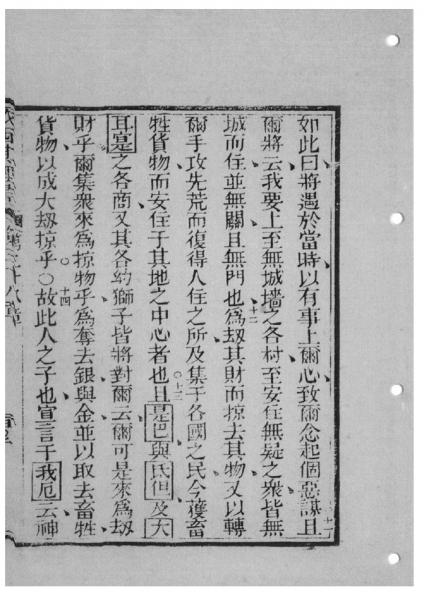 如此曰將遇於當時以有事上爾心致爾念起個惡謀且
十一
爾將云我要上至無城墻之各村至安住無疑之衆皆無
城而住並無關且無門也爲刼其財而掠去其物又以轉
十二
爾手攻先荒而復得人住之所及集于各國之民今穫畜
牲貨物而安住于其地之中心者也且是巴與氏但及大
十三
耳寔之各商又其各幼獅子皆將對爾云爾可是來爲刼
財乎爾集衆來爲掠物乎爲奪去銀與金並以取去畜牲
貨物以成大刼掠乎○故此人之子也宣言于我厄云神
十四
十八章